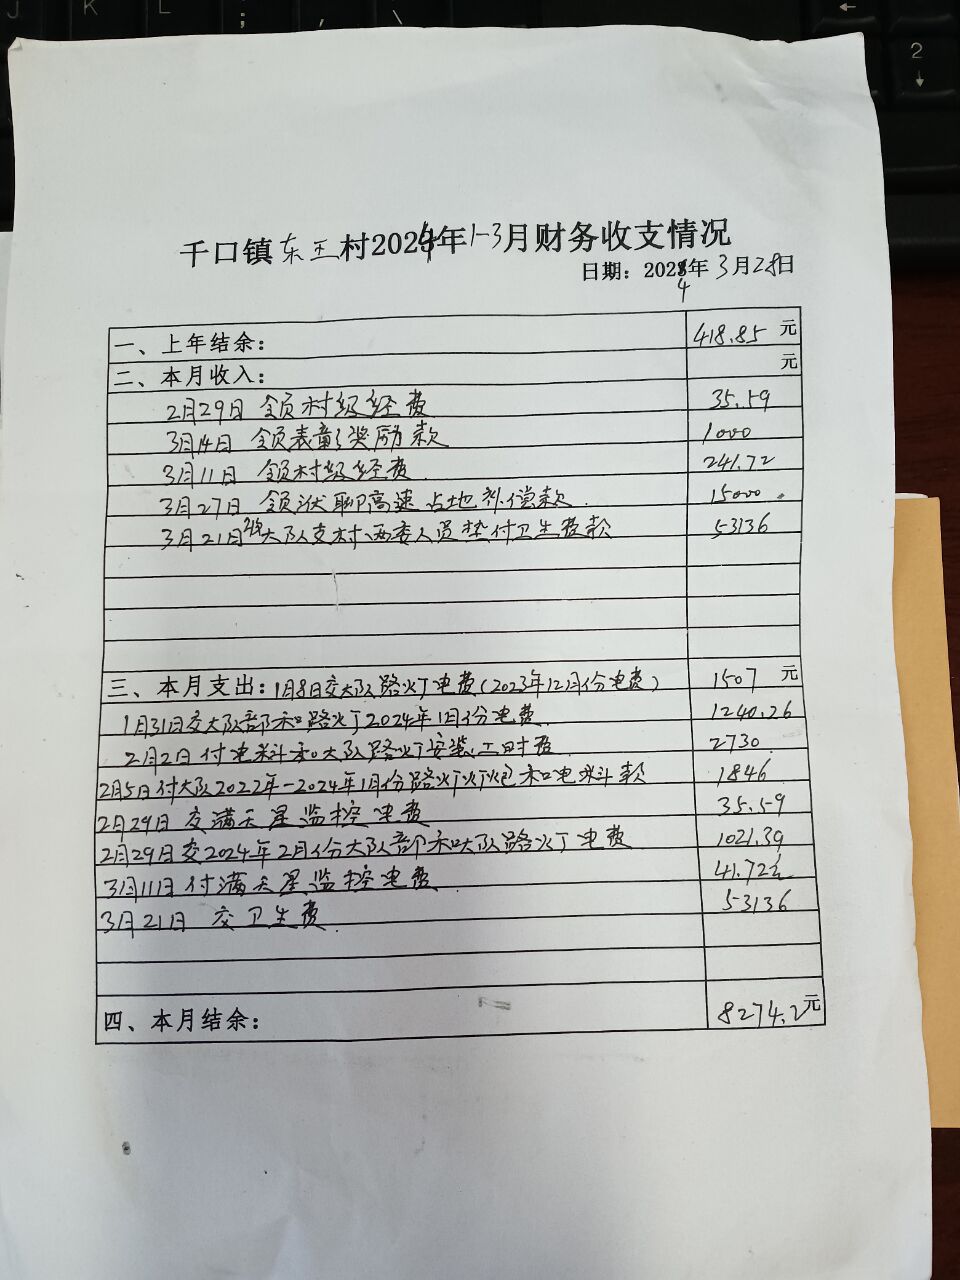 千口镇东王村2024年1-3月财务收支情况
日期：2024年3月28日
一、上年结余： 418.85元
二、本月收入： 元
2月29日 领村级经费 35.59
3月14日 领表彰奖励款 1000
3月11日 领村级经费 241.72
3月27日 领濮聊高速占地补偿款. 15000.
3月21日大队支村、两委人员垫付卫生费款 53136
三、本月支出：1月8日交大队路灯电费(2023年12月份电费) 1507元
1月31日交大队部和路灯2024年1月份电费. 1240.26
2月2日付电料和大队路灯安装工时费 2730.
2月5日付大队2022年-2024年1月份路灯灯炮和电料款 1846
2月29日交满天星监控电费 35.59
2月29日交2024年2月份大队部和大队路灯电费 1021.39
3月11日付满天星监控电费 41.72元
3月21日 交卫生费. 53136
四、本月结余： 8274.2元